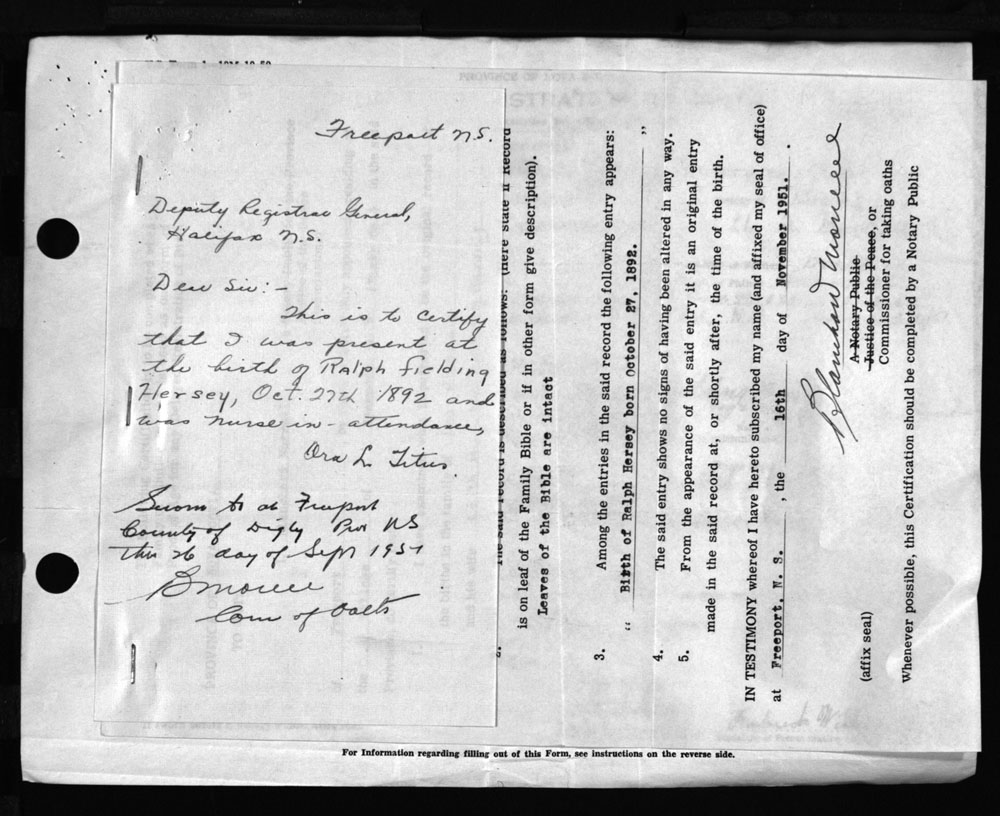 Freeport N.S.
Deputy Registrar General,
Halifax N.S.
Dear Sir:-
This is to certify
that I was present at
the birth of Ralph Fielding
Hersey, Oct. 27th 1892 and
was nurse in-attendance,
Ora L. Titus.
Sworn to at Freeport
County of Digby Prov NS
this 26 day of Sept 1951
B Morrell
Com of Oaths
2. The said record is described as follows: (here state if Record
is on leaf of the Family Bible or if in other form give description).
Leaves of the Bible are intact
3. Among the entries in the said record the following entry appears:
" Birth of Ralph Hersey born October 27, 1892. "
4. The said entry shows no signs of having been altered in any way.
5. From the appearance of the said entry it is an original entry
made in the said record at, or shortly after, the time of the birth.
IN TESTIMONY whereof I have hereto subscribed my name (and affixed my seal of office)
at Freeport, N. S. , the 16th day of November 1951. .
A Notary Public
Justice of the Peace, or
Commissioner for taking oaths
(affix seal)
Whenever possible, this Certification should be completed by a Notary Public
For Information regarding filling out of this Form, see instructions on the reverse side.